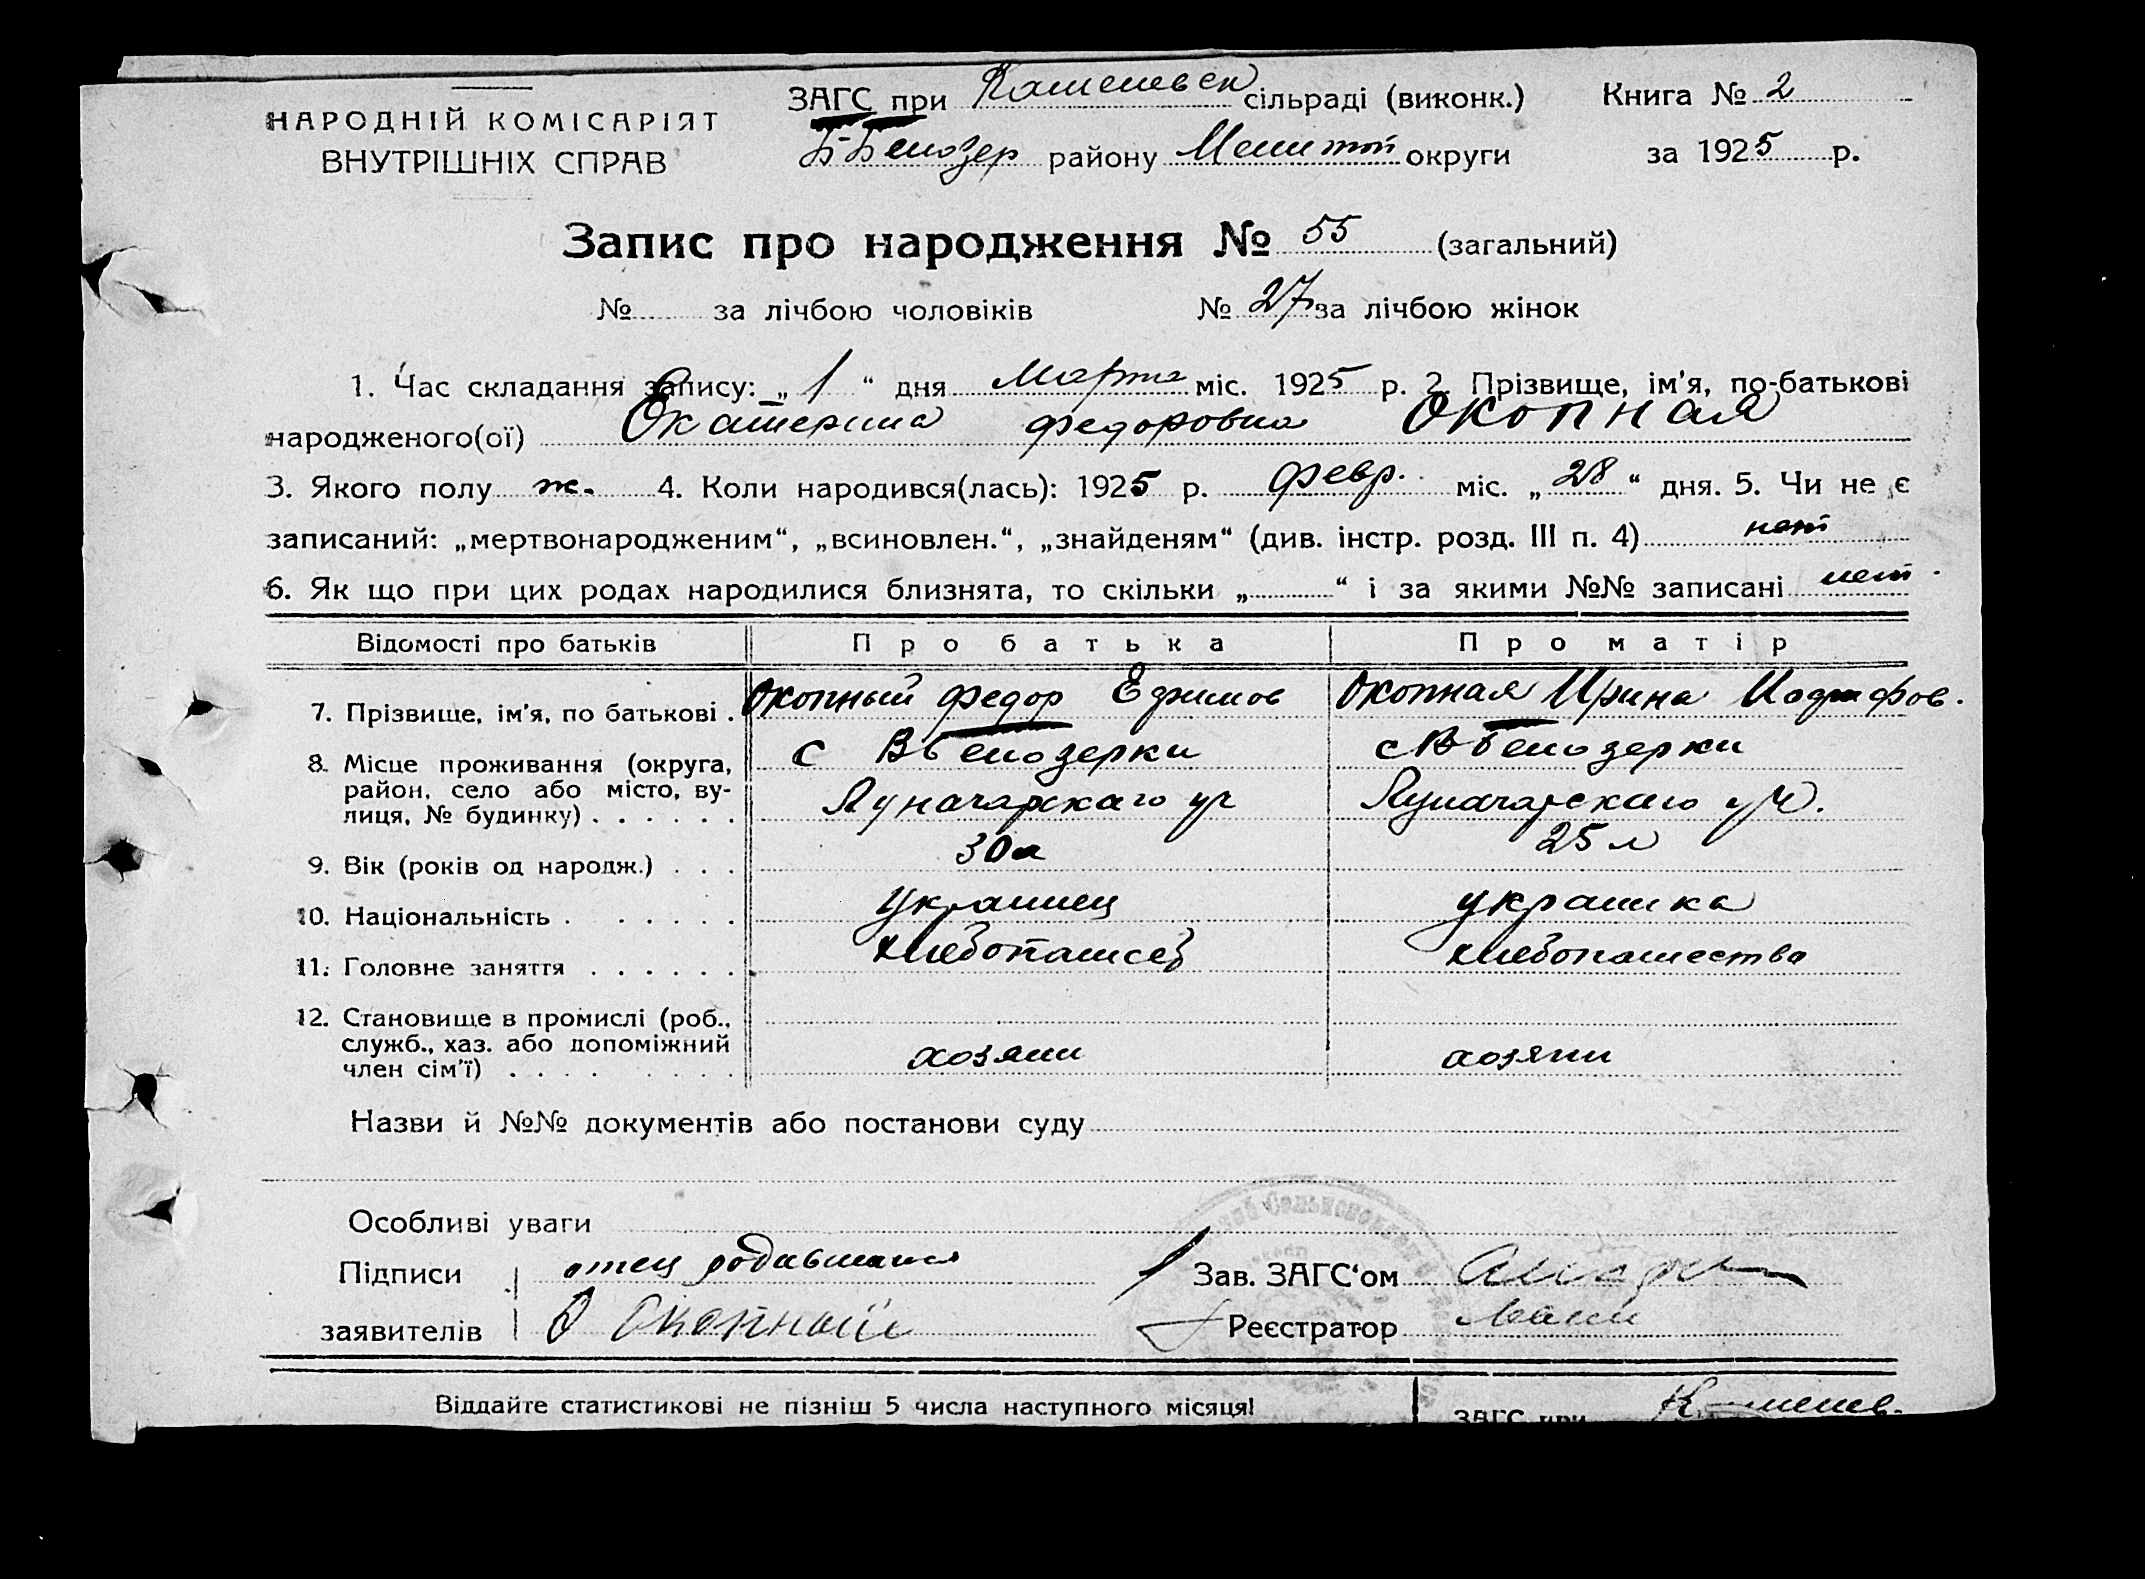 НАРОДНІЙ КОМІСАРІЯТ
ВНУТРІШНІХ СПРАВ
ЗАГС при сільраді (виконк.)
Б-Белозер району Мелитоп округи
Книга № 2
за 1925 р.
Запис про народження № 55 (загальний)
№ за лічбою чоловіків № 27 за лічбою жінок
1. Час складання запису: „ 1 “ дня Марта міс. 1925 р. 2. Прізвище, ім'я, по-батькові
народженого(ої) Екатерина Федоровна Окопная
3. Якого полу ж. 4. Коли народився(лась): 1925 р. Февр. міс. „ 28 “ дня. 5. Чи не є
записаний: „мертвонародженим“, „всиновлен.“, „знайденям“ (див. інстр. розд. III п. 4) нет
6. Як що при цих родах народилися близнята, то скільки „ “ і за якими №№ записані нет
Відомості про батьків Про батька Про матір
7. Прізвище, ім'я, по батькові . Окопный Федор Ефимов Окопная Ирина
8. Місце проживання (округа,
район, село або місто, ву-
лиця, № будинку) . . . . . .
с Вбелозерки с Вбелозерки
Луначарскаго уч Луначарскаго уч.
9. Вік (років од народж.) . . . 30л 25 л
10. Національність . . . . . . украинец украинка
11. Головне заняття . . . . . . хлебопашец хлебопашество
12. Становище в промислі (роб.,
служб., хаз. або допоміжний
член сім'ї) . . . . . . . . хозяин хозяин
Назви й №№ документів або постанови суду
Особливі уваги
Підписи отец родившаяся
заявителів Окопный
Зав. ЗАГС‘ом
Реєстратор
Віддайте статистикові не пізніш 5 числа наступного місяця!
ЗАГС при